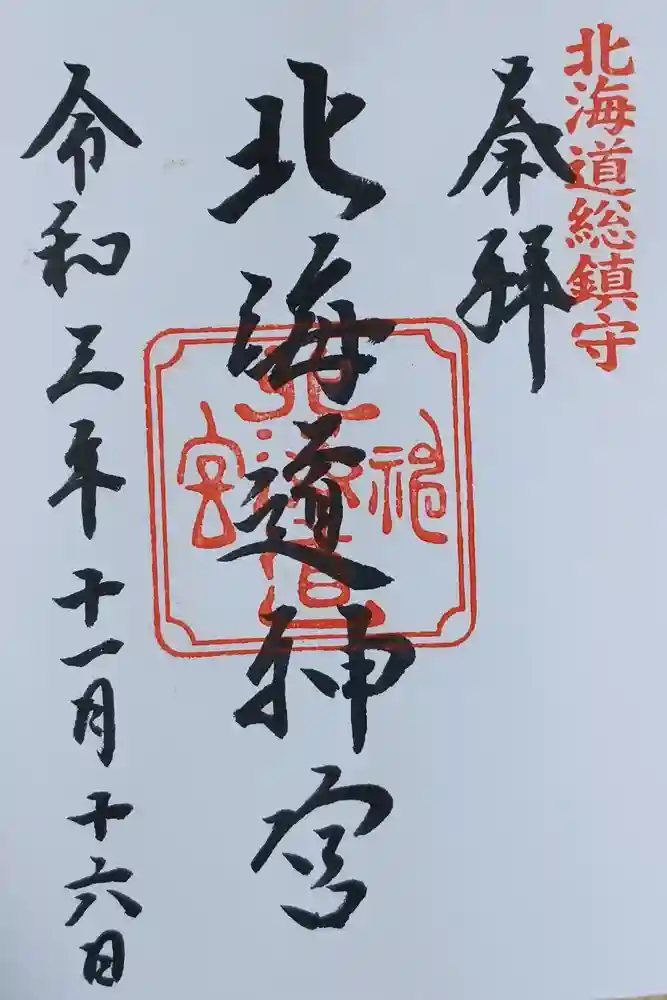 北海道総鎮守
奉拝
北海道神宮
令和三年十一月十六日